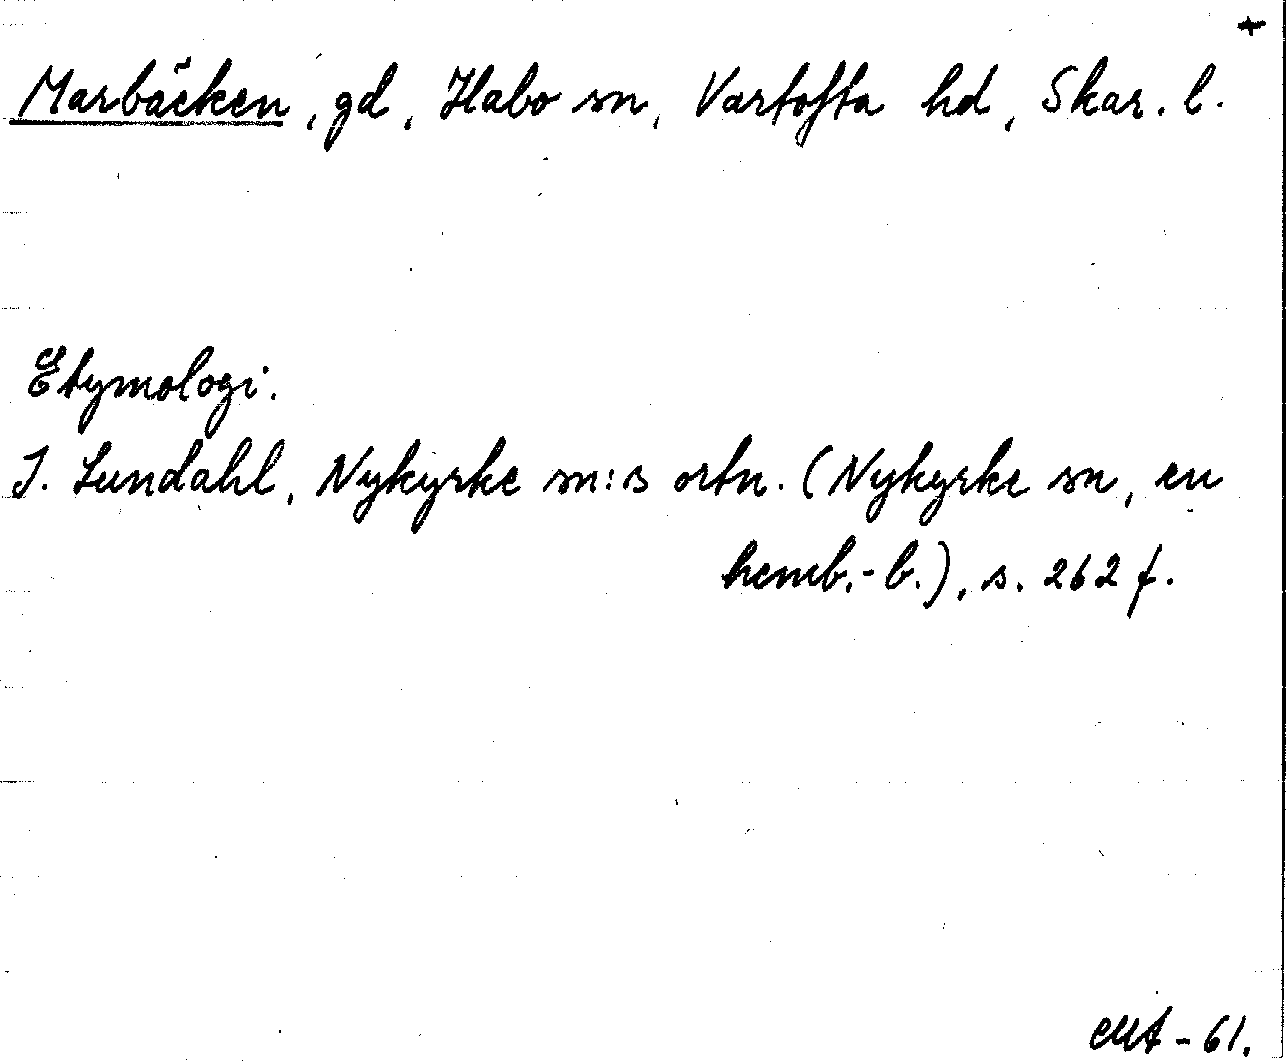 +
Marbäcken, gd, Habo sn, Vartofta hd, Skar. l.
Etymologi.
I. Lundahl, Nykyrke sn:s ortn. (Nykyrke sn, en
hemb.-b.), s. 262 f.
MA - 61.